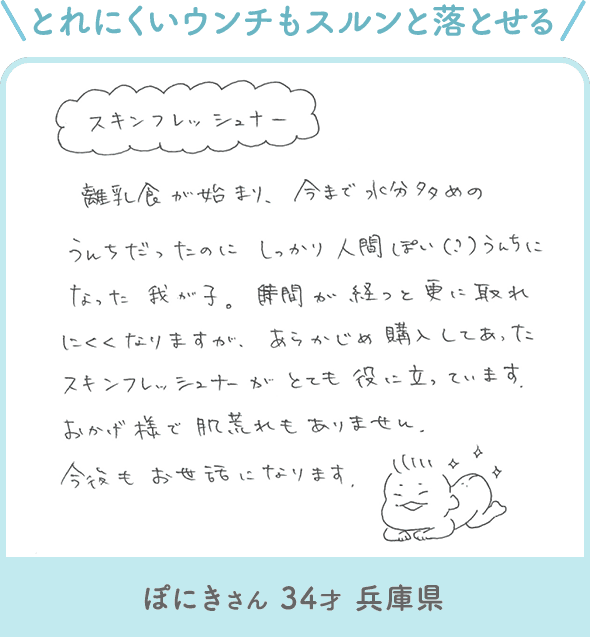 とれにくいウンチもスルンと落とせる
スキンフレッシュナー
離乳食が始まり、今まで水分多めの
うんちだったのに しっかり人間ぽい(?)うんちに
なった我が子。時間が経つと更に取れ
にくくなりますが、あらかじめ購入してあった
スキンフレッシュナーがとても役に立っています.
おかげ様で肌荒れもありません.
今後もお世話になります.
ぽにきさん 34才 兵庫県